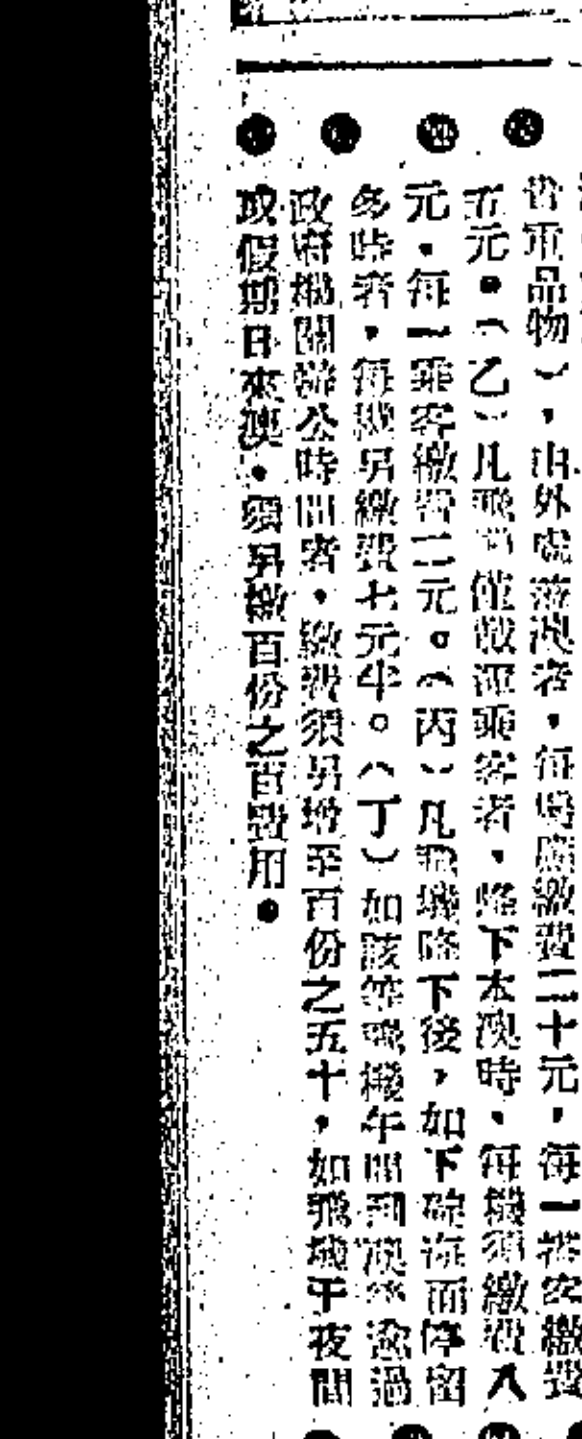 貴重品物），由外處落澳者，每機應繳費二十元，每一搭客繳費
五元。（乙）凡飛機僅載運乘客者，降下本澳時，每機須繳費八
元，每一乘客繳費二元。（丙）凡飛機降下後，如下碇海面停留
多時者，每機另繳費七元半。（丁）如該等飛機午間到澳 逾過
政府機關辦公時間者，繳費須另增至百份之五十，如飛機于夜間
或假期日來澳，須另繳百份之百費用。